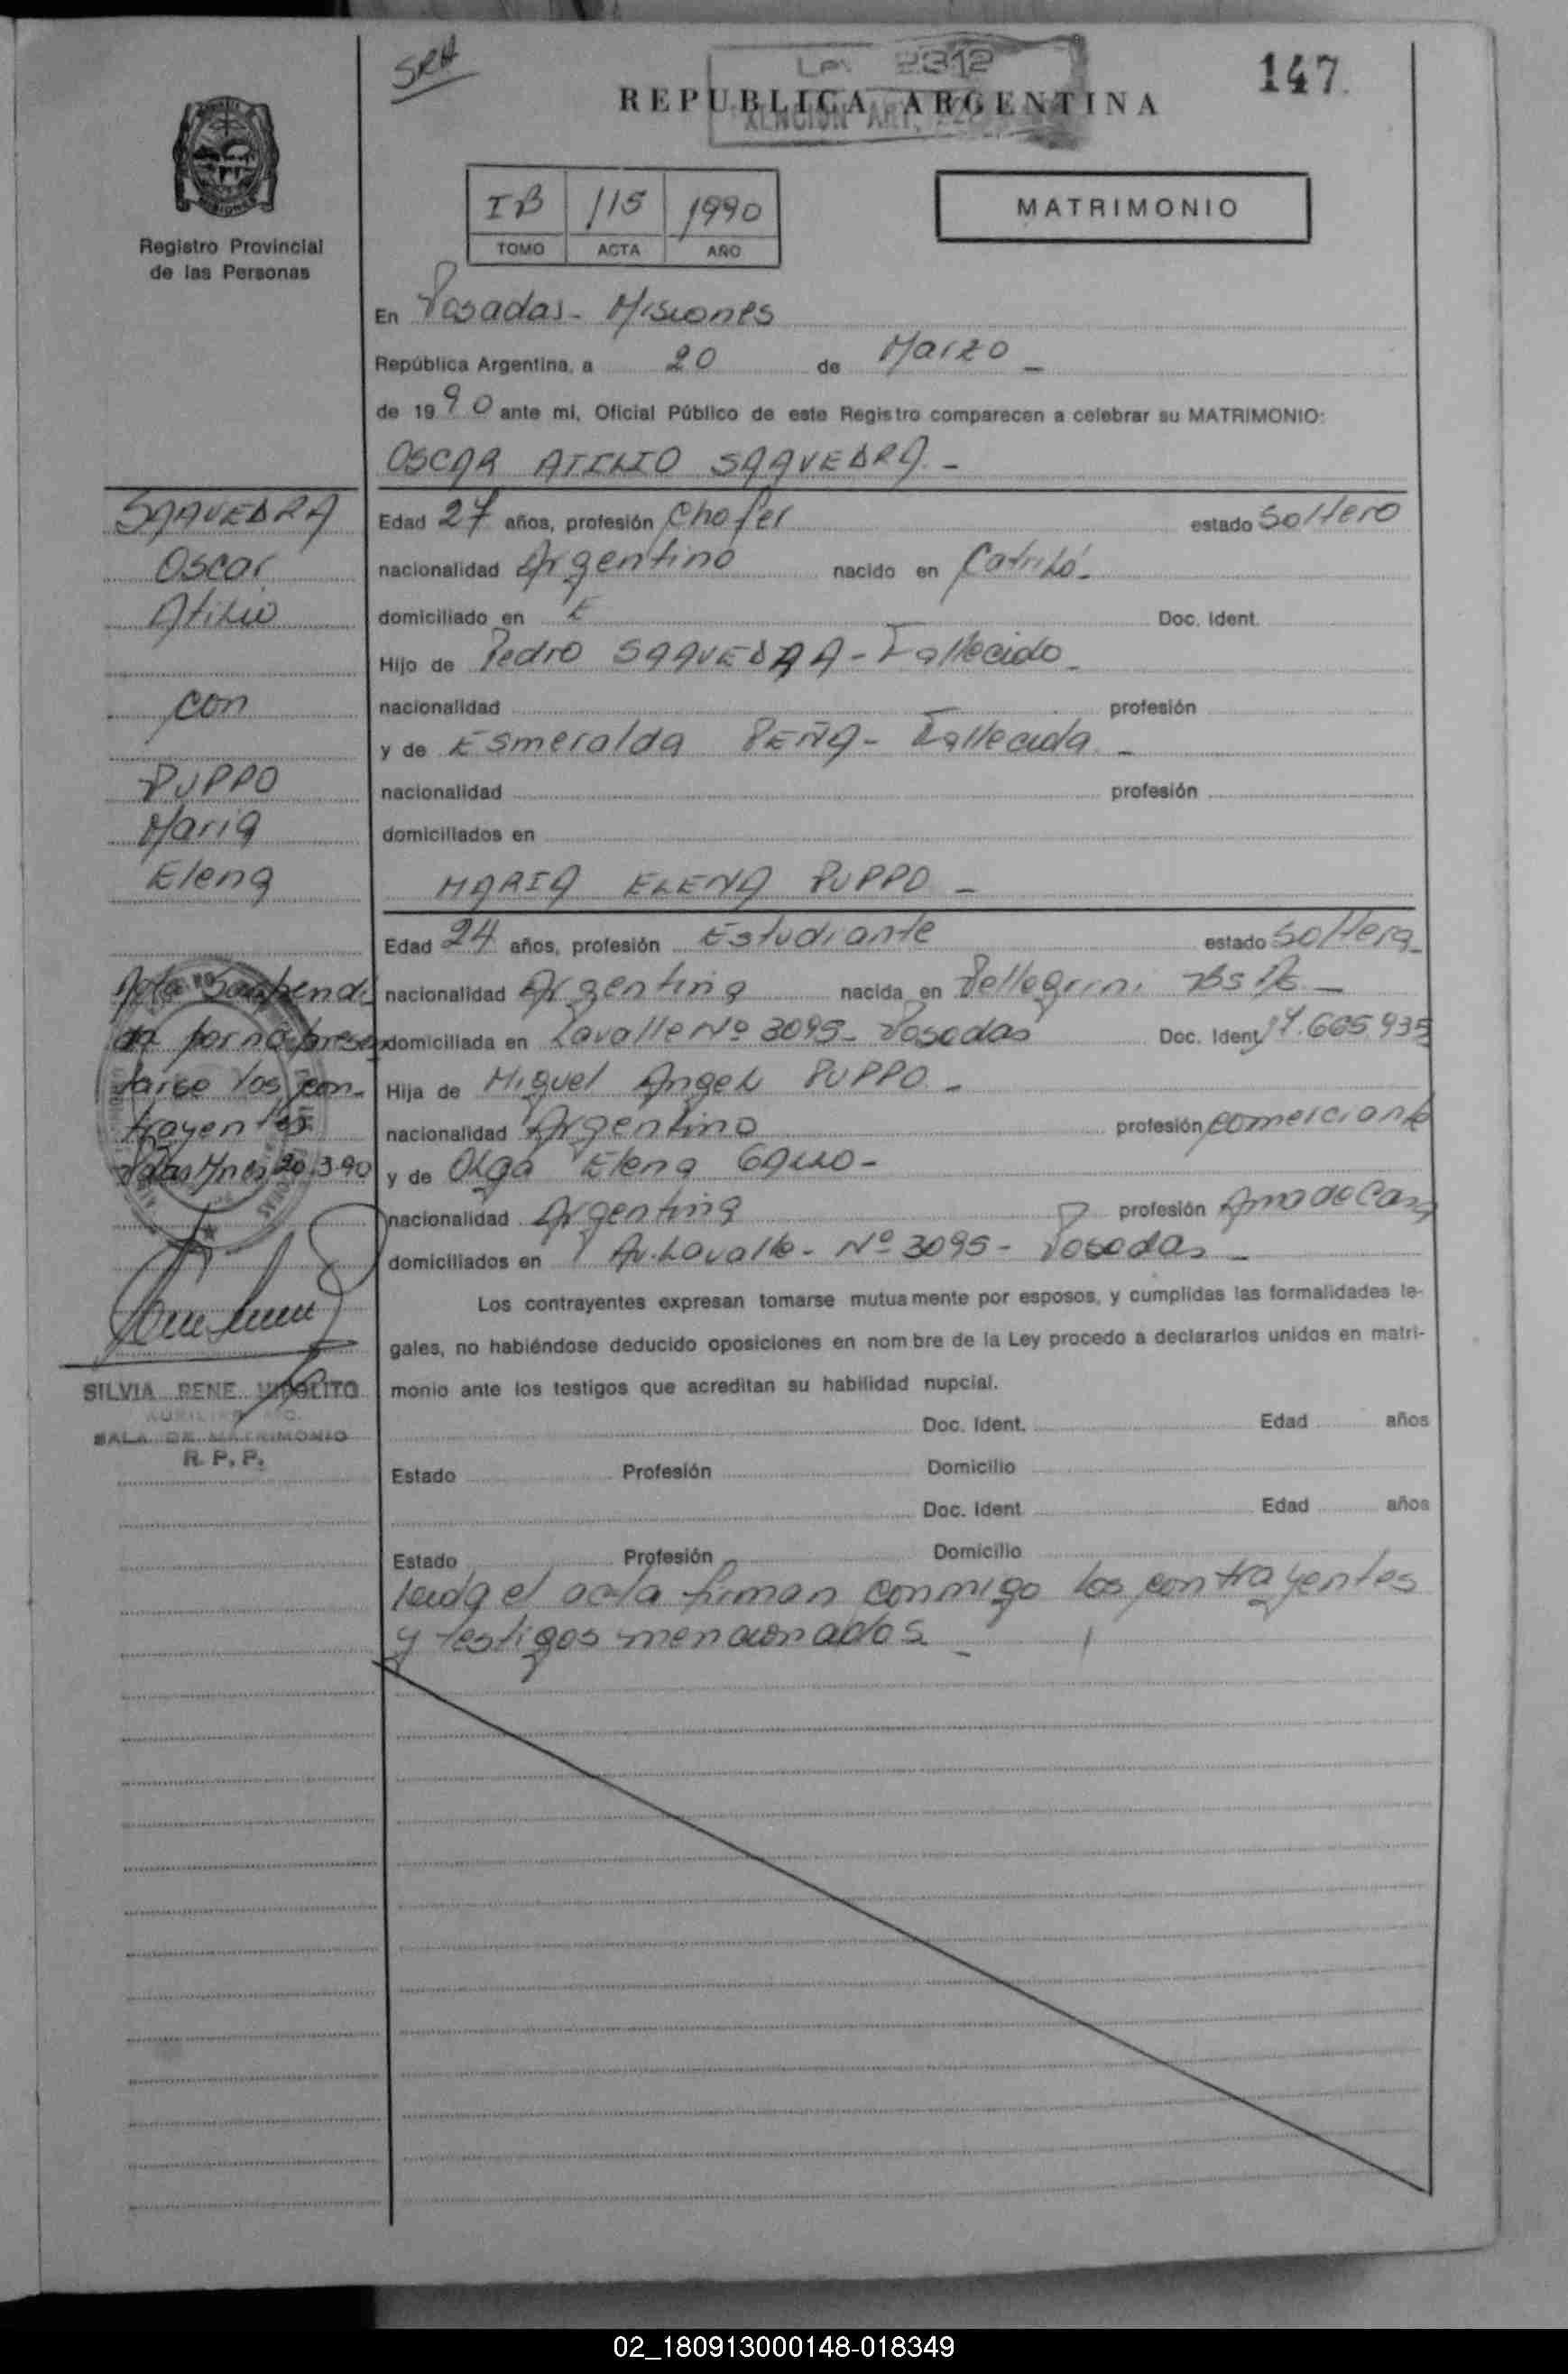 SRH
Ley 2312
147.
REPUBLICA ARGENTINA
EXENCION ART.
IB 115 1990
TOMO ACTA AÑO
MATRIMONIO
Registro Provincial
de las Personas
En Posadas - Misiones
República Argentina, a 20 de Marzo -
de 1990 ante mi, Oficial Público de este Registro comparecen a celebrar su MATRIMONIO:
OSCAR ATILIO SAAVEDRA. -
Edad 27 años, profesión Chofer estado Soltero
nacionalidad Argentino nacido en Catriló -
domiciliado en E Doc. Ident.
Hijo de Pedro SAAVEDRA - Fallecido -
nacionalidad profesión
y de Esmeralda PEÑA - Fallecida -
nacionalidad profesión
domiciliados en
MARIA ELENA PUPPO -
Edad 24 años, profesión Estudiante estado Soltera -
nacionalidad Argentina nacida en Pellegrini Bs As -
domiciliada en Lavalle Nº 3095 - Posadas Doc. Ident. 17.665.935
Hija de Miguel Angel PUPPO -
nacionalidad Argentino profesión comerciante
y de Olga Elena -
nacionalidad Argentina profesión Ama de Casa
domiciliados en Av. Lavalle - Nº 3095 - Posadas -
Los contrayentes expresan tomarse mutuamente por esposos, y cumplidas las formalidades le-
gales, no habiéndose deducido oposiciones en nombre de la Ley procedo a declararlos unidos en matri-
monio ante los testigos que acreditan su habilidad nupcial.
Doc. Ident. Edad años
Estado Profesión Domicilio
Doc. Ident Edad años
Estado Profesión Domicilio
Leida el acta firman conmigo los contrayentes
y testigos mencionados -
SAAVEDRA
Oscar
Atilio
con
PUPPO
Maria
Elena
Acta Suspendi
da por no presen
tarse los con-
trayentes
Pdas Mnes 20.3.90
SILVIA RENE HIPOLITO
SALA DE MATRIMONIO
R. P. P.
02_180913000148-018349